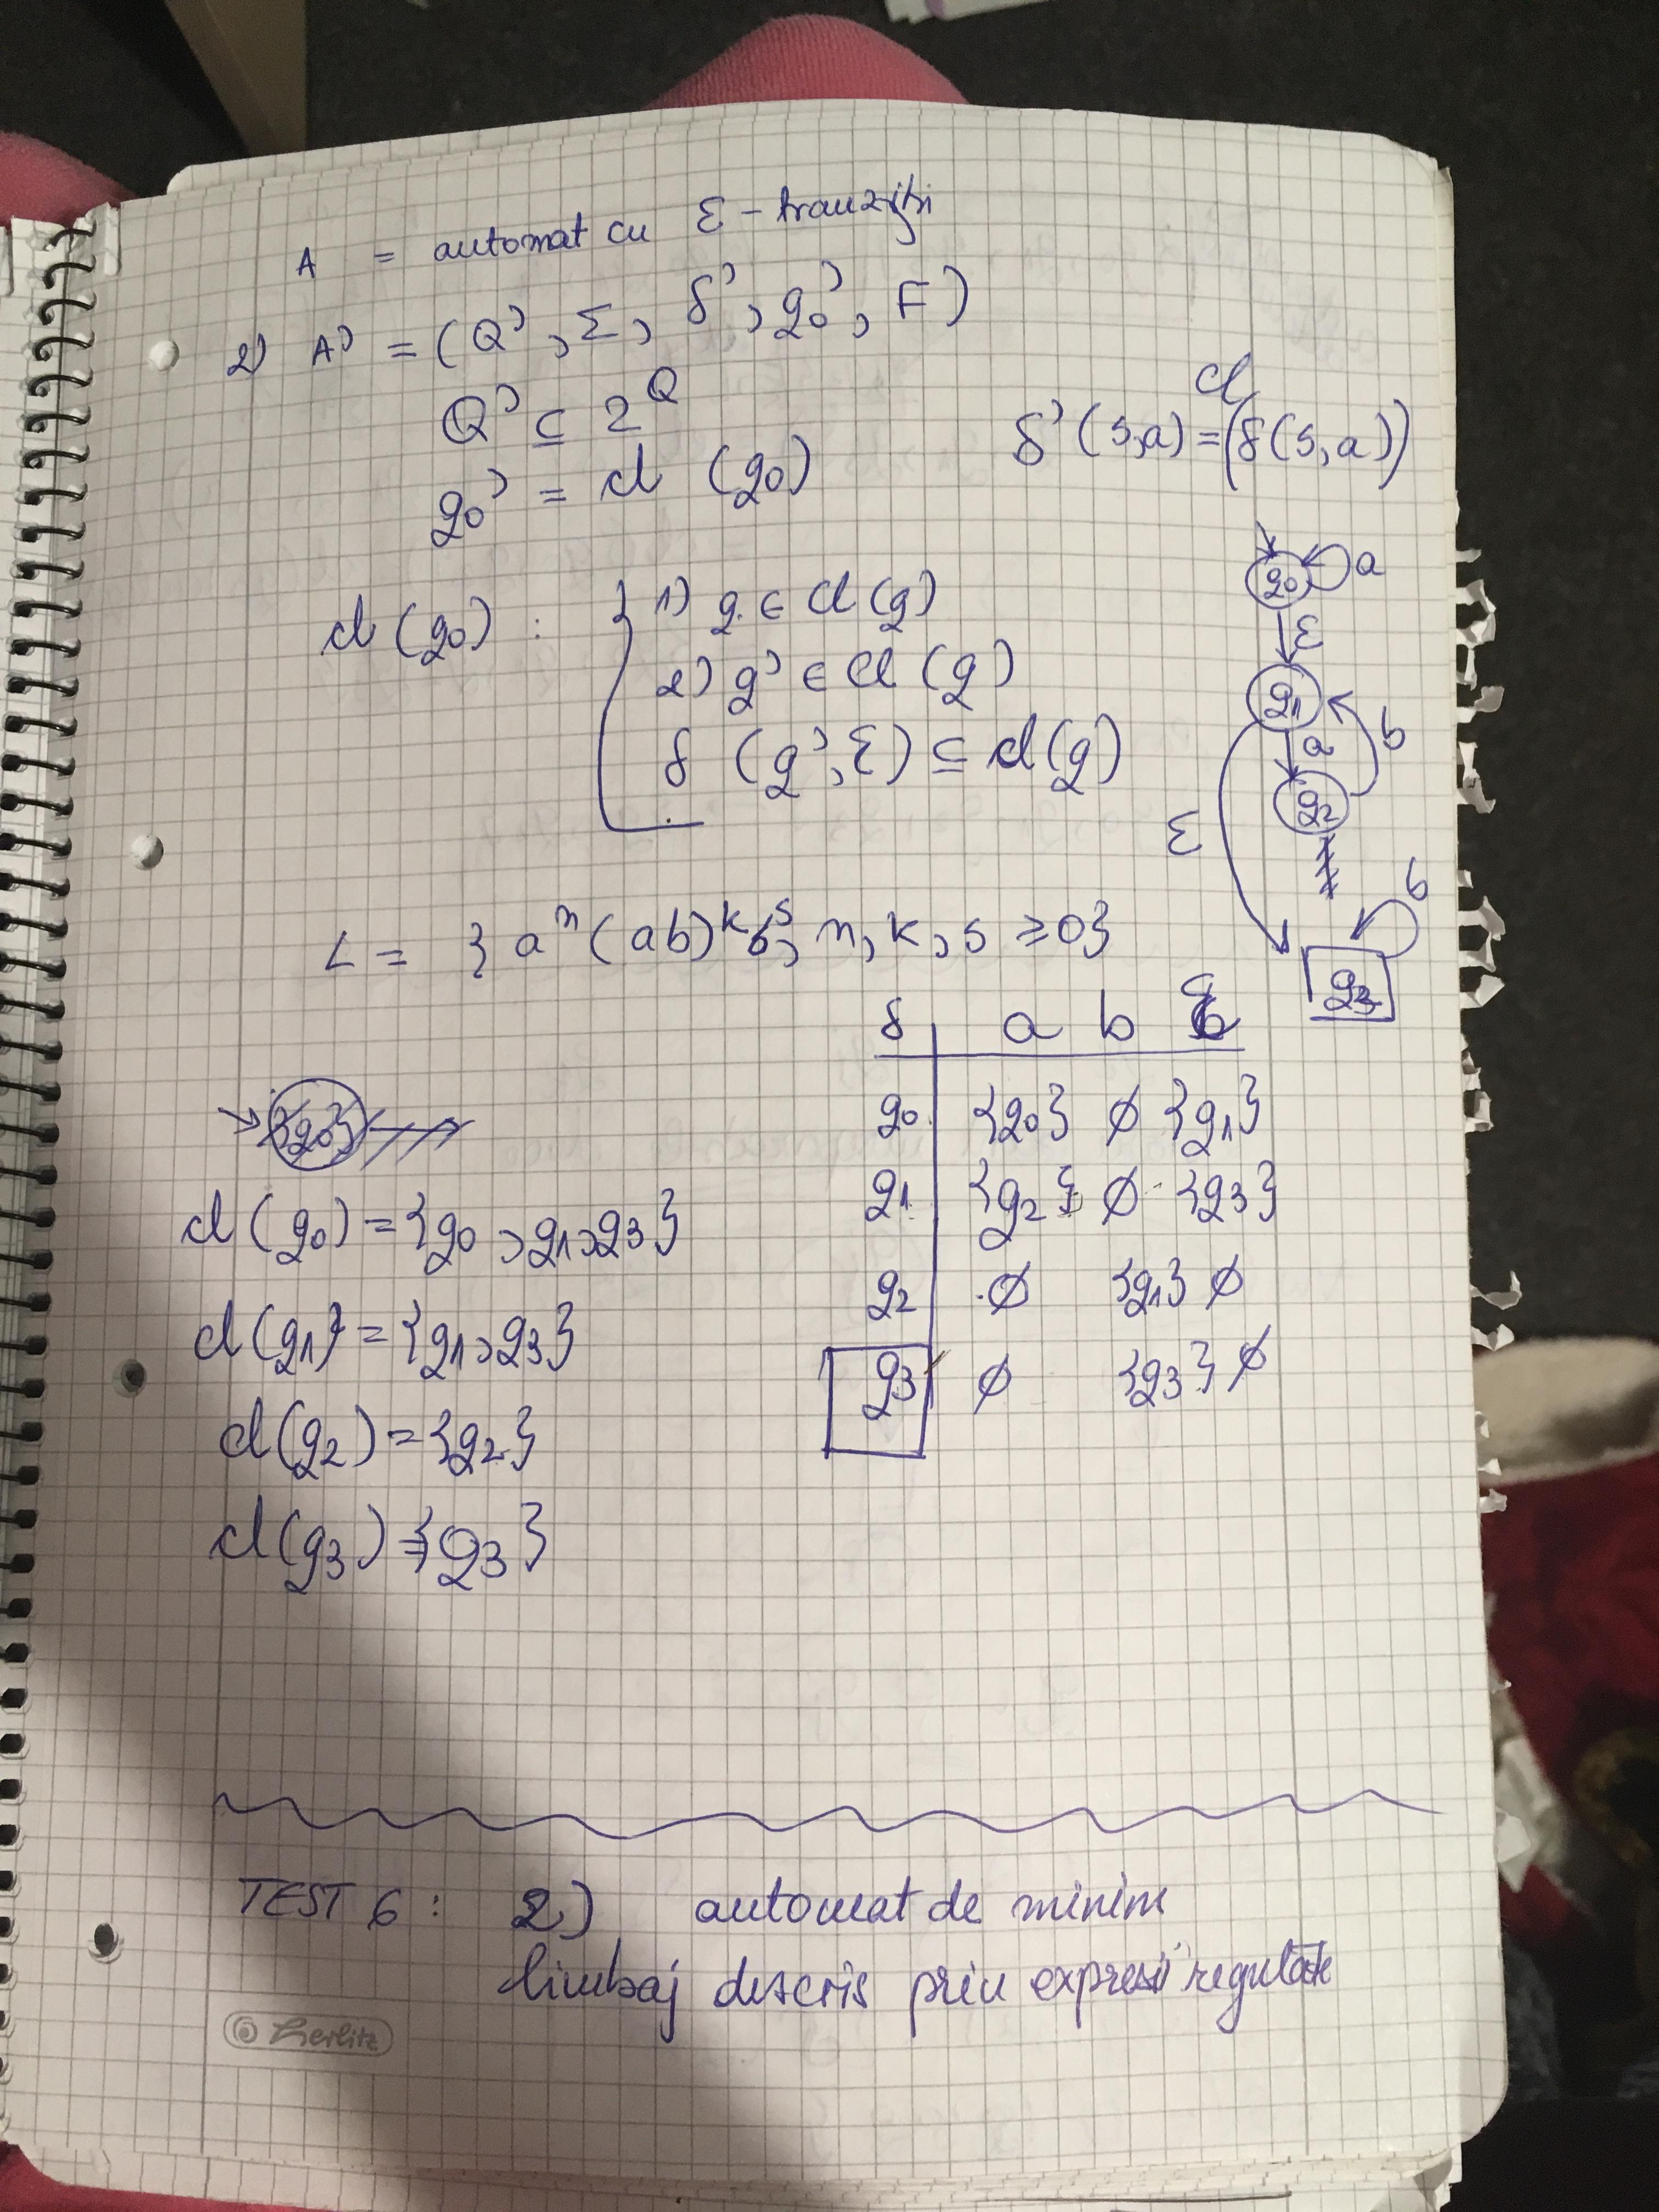 A = automat cu Ɛ - tranziții
2) A' = (Q', Σ, δ', q0', F)
Q' ⊆ 2^Q
δ'(s,a) = cl(δ(s,a))
q0' = cl (q0)
cl (q0) : { 1) q ∈ cl (q)
2) q' ∈ cl (q)
δ (q', Ɛ) ⊆ cl (q)
q0 a
Ɛ
q1
a b
q2
Ɛ
b
q3
L = { a^n (ab)^k b^s, n, k, s ≥ 0 }
δ a b Ɛ
q0 {q0} ∅ {q1}
q1 {q2} ∅ {q3}
q2 ∅ {q1} ∅
q3 ∅ {q3} ∅
{q0}
cl (q0) = {q0, q1, q3}
cl (q1) = {q1, q3}
cl (q2) = {q2}
cl (q3) = {q3}
TEST 6 : 2) automat de minim
limbaj descris prin expresii regulate
Herlitz